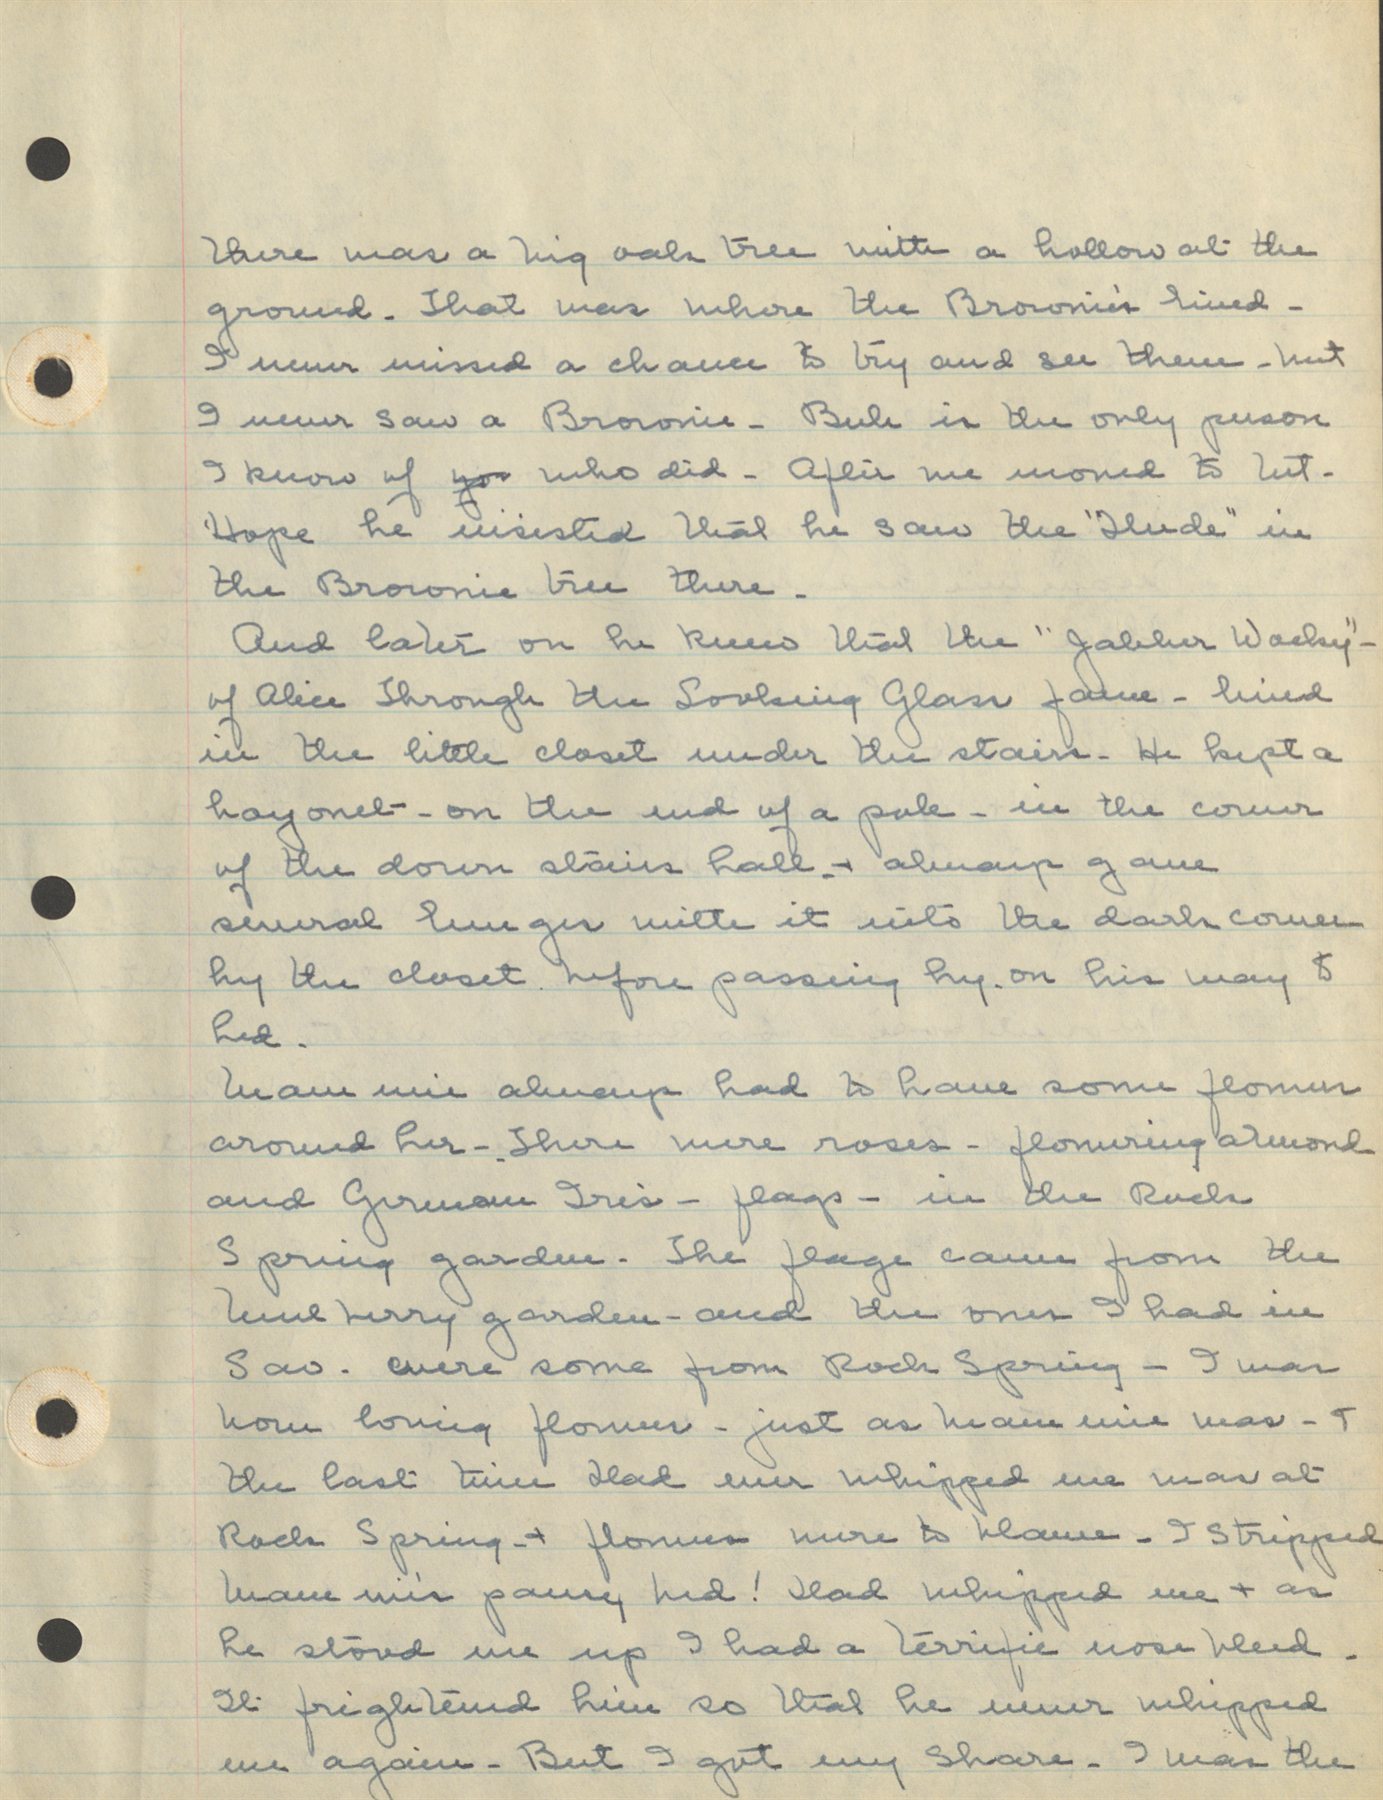 There was a big oak tree with a hollow at the
ground. That was where the Brownies lived -
I never missed a chance to try and see them - but
I never saw a Brownie - Bub is the only person
I know of you who did - After we moved to Mt.
Hope he insisted that he saw the " " in
the Brownie tree there.
And later on he knew that the "Jabber Wocky" -
of Alice Through the Looking Glass fame - lived
in the little closet under the stairs - He kept a
bayonet - on the end of a pole - in the corner
of the down stairs hall - + always gave
several lunges with it into the dark corner
by the closet before passing by. on his way to
bed.
Mammie always had to have some flowers
around her - There were roses - flowering almond
and German Iris - flags - in the Rock
Spring garden. The flags came from the
Mulberry garden - and the ones I had in
Sav. were some from Rock Spring - I was
born loving flowers - just as Mammie was - +
the last time Dad ever whipped me was at
Rock Spring - + flowers were to blame - I stripped
Mammie's pansy bed! Dad whipped me + as
he stood me up I had a terrific nose bleed.
It frightened him so that he never whipped
me again - But I got my share - I was the